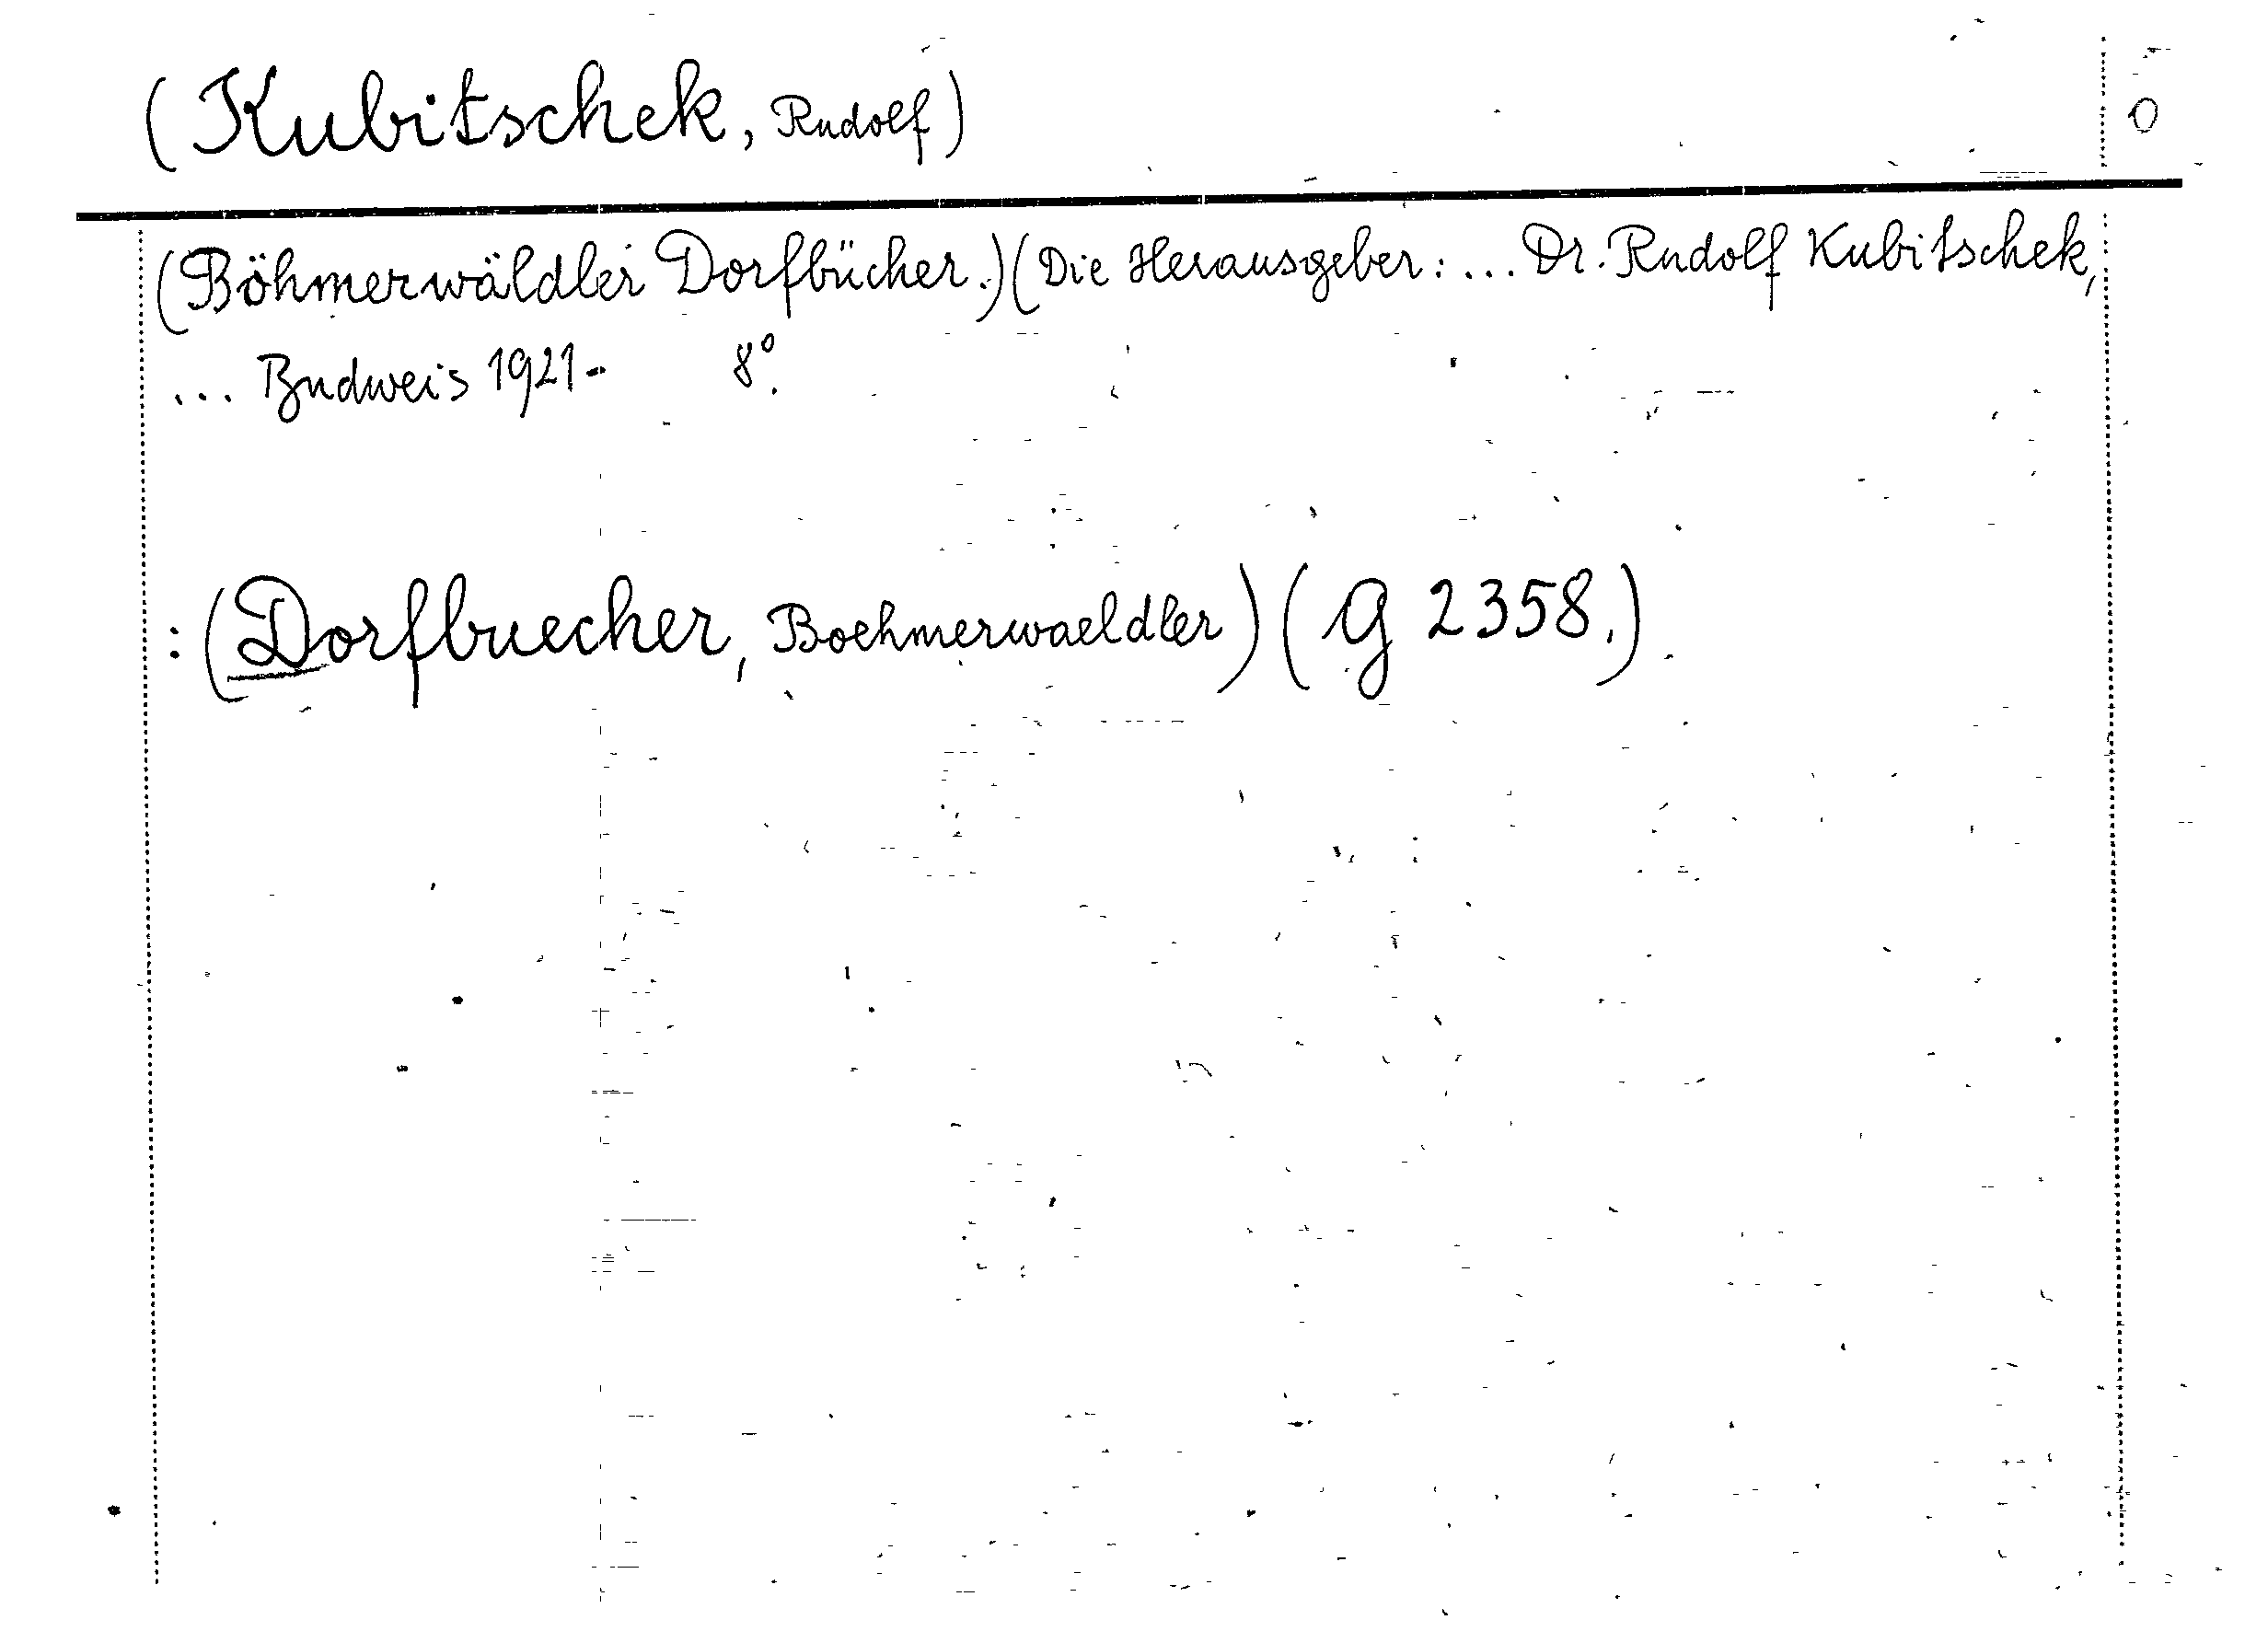 (Kubitschek, Rudolf) 0
(Böhmerwäldler Dorfbücher.) (Die Herausgeber: ... Dr. Rudolf Kubitschek,
... Budweis 1921- 8°.
: (Dorfbuecher, Boehmerwaeldler) (G 2358.)